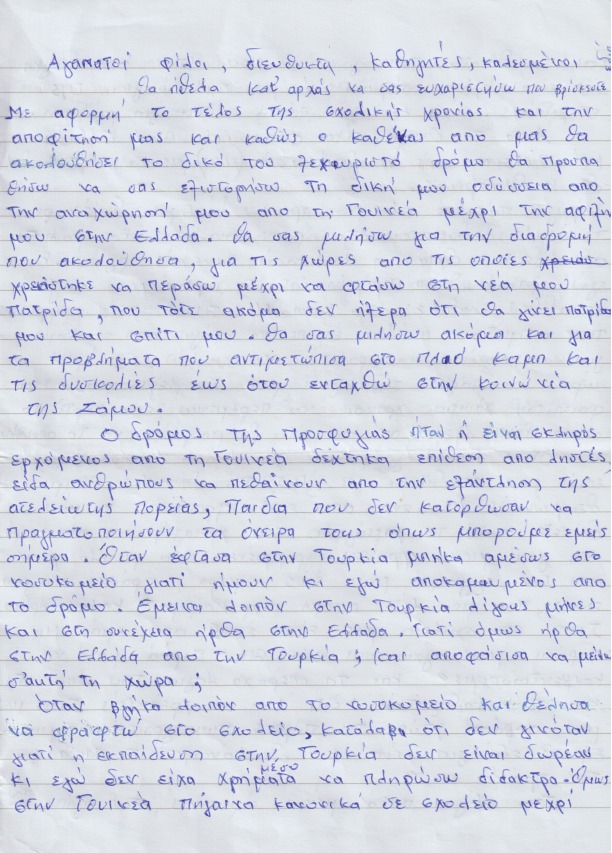 Αγαπατοί φίλοι, διευθυντά, καθηγητές, καλεσμένοι
Θα ήθελα κατ' αρχάς να σας ευχαριστήσω που βρίσκεστε
Με αφορμή το τέλος της σχολικής χρονιάς και την
αποφίτησή μας και καθώς ο καθένας απο μας θα
ακολουθήσει το δικό του ξεχωριστό δρόμο θα προσπα
θήσω να σας εξιστορήσω τη δική μου οδύσσεια απο
την αναχώρησή μου απο τη Γουινέα μέχρι την αφιξη
μου στην Ελλάδα. Θα σας μιλήσω για την διαδρομή
που ακολούθησα, για τις χώρες απο τις οποίες χρειάσ
χρειάστηκε να περάσω μέχρι να φτάσω στη νέα μου
πατρίδα, που τότε ακόμα δεν ήξερα ότι θα γίνει πατρίδα
μου και σπίτι μου. Θα σας μιλήσω ακόμα και για
τα προβλήματα που αντιμετώπισα στο καμπ και
τις δυσκολίες έως ότου ενταχθώ στην κοινωνία
της Σάμου.
Ο δρόμος της προσφυγιάς ήταν ή είναι σκληρός
ερχόμενος απο τη Γουινέα δέχτηκα επίθεση απο ληστές,
είδα ανθρώπους να πεθαίνουν απο την εξάντληση της
ατελείωτης πορείας, παιδια που δεν κατόρθωσαν να
πραγματοποιήσουν τα όνειρα τους όπως μπορούμε εμείς
σήμερα. Όταν έφτασα στην Τουρκία μπήκα αμέσως στο
νοσοκομείο γιατί ήμουν κι εγώ αποκαμωμένος απο
το δρόμο. Έμεινα λοιπόν στην Τουρκία λίγους μήνες
και στη συνέχεια ήρθα στην Ελλάδα. Γιατί όμως ήρθα
στην Ελλάδα απο την Τουρκία; και αποφάσισα να μείνω
σ'αυτή τη χώρα;
Όταν βγήκα λοιπόν απο το νοσοκομείο και θέλησα
να στο σχολείο, κατάλαβα ότι δεν γινόταν
γιατί η εκπαίδευση στην Τουρκία δεν είναι δωρεάν
κι εγώ δεν είχα χρήματα μέσω να πληρώσω δίδακτρα. Όμως
στην Γουινέα πήγαινα κανονικά σε σχολείο μεχρί